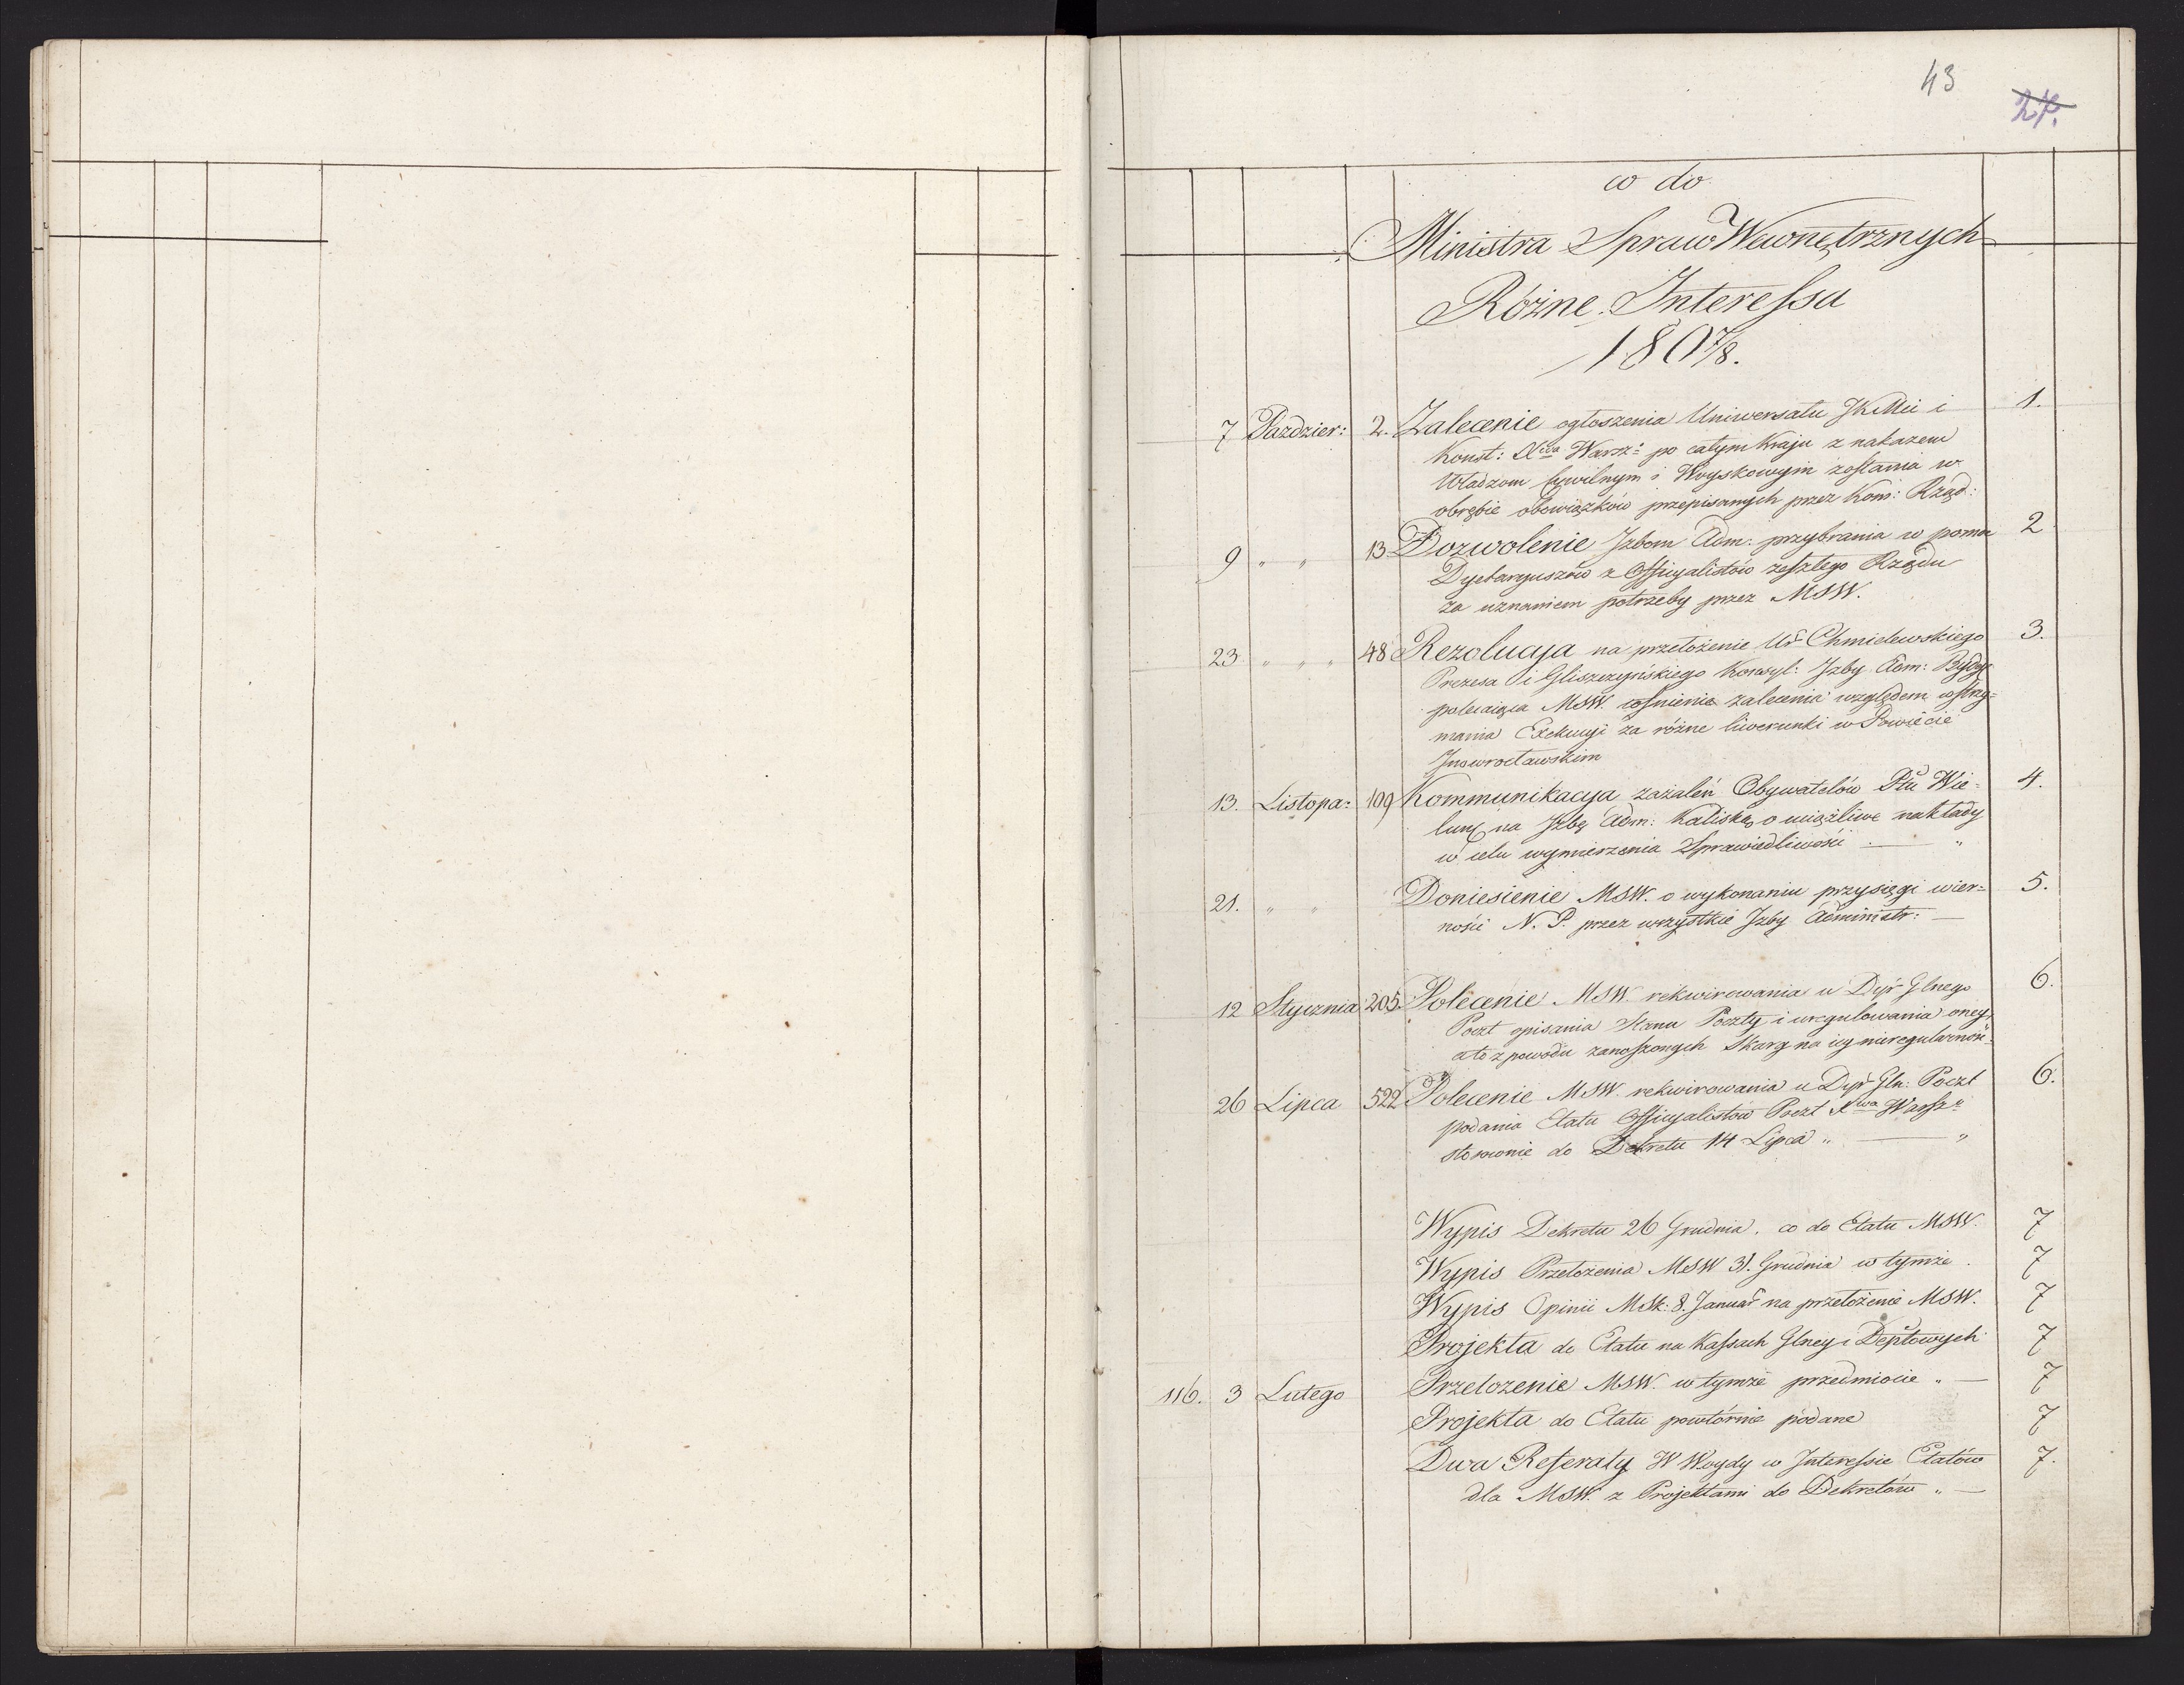 43
27.
co do
Ministra Spraw Wewnętrznych
Różne Interessa
1807/8.
7 Pazdzier: 2. Zalecenie ogłoszenia Uniwersału JKMci i 1.
Konst: Xtwa Warsz: po całym Kraju z nakazem
Władzom Cywilnym i Woyskowym zostania w
obrębie obowiązków przepisanych przez Kom: Rząd:
9 " " 13 Dozwolenie Izbom Adm: przybrania w pomoc 2
Dyetaryuszów z Officyalistów zeszłego Rządu
za uznaniem potrzeby przez MSW.
23 " " " 48 Rezolucyja na przełożenie Ur Chmielewskiego 3.
Prezesa i Gliszczyńskiego Konsyl: Izby Adm: Bydg:
polecaiąca MSW. cofnienie zalecenia względem wstrzy=
mania Exekucyi za różne liwerunki w Powiecie
Inowrocławskim
13. Listopa: 109 Kommunikacyja zażaleń Obywatelów Ptu Wie= 4.
luń: na Izbę Adm: Kaliską o uciążliwe nakłady
w celu wymierzenia Sprawiedliwości — "
21. " " Doniesienie MSW. o wykonaniu przysięgi wier= 5.
ności N. P. przez wszystkie Izby Administr: —
12 Stycznia 205. Polecenie MSW. rekwirowania u Dyr Glnego 6.
Poczt opisania Stanu Poczty i uregulowania oney,
a to z powodu zanoszonych Skarg na iey nieregularność.
26 Lipca 522 Polecenie MSW. rekwirowania u Dyr Gln: Poczt 6.
podania Etatu Officyalistów Poczt Xtwa Warsz:
stosownie do Dekretu 14 Lipca " — "
Wypis Dekretu 26 Grudnia, co do Etatu MSW. 7
Wypis Przełożenia MSW 31. Grudnia w tymże. 7
Wypis Opinii MSk: 8. Januar na przełożenie MSW. 7
Projekta do Etatu na Kassach Glney i Deptowych 7
116. 3 Lutego Przełożenie MSW. w tymże przedmiocie " — 7
Projekta do Etatu powtórnie podane 7
Dwa Referaty W Woydy w Interessie Etatów 7.
dla MSW. z Projektami do Dekretów " —